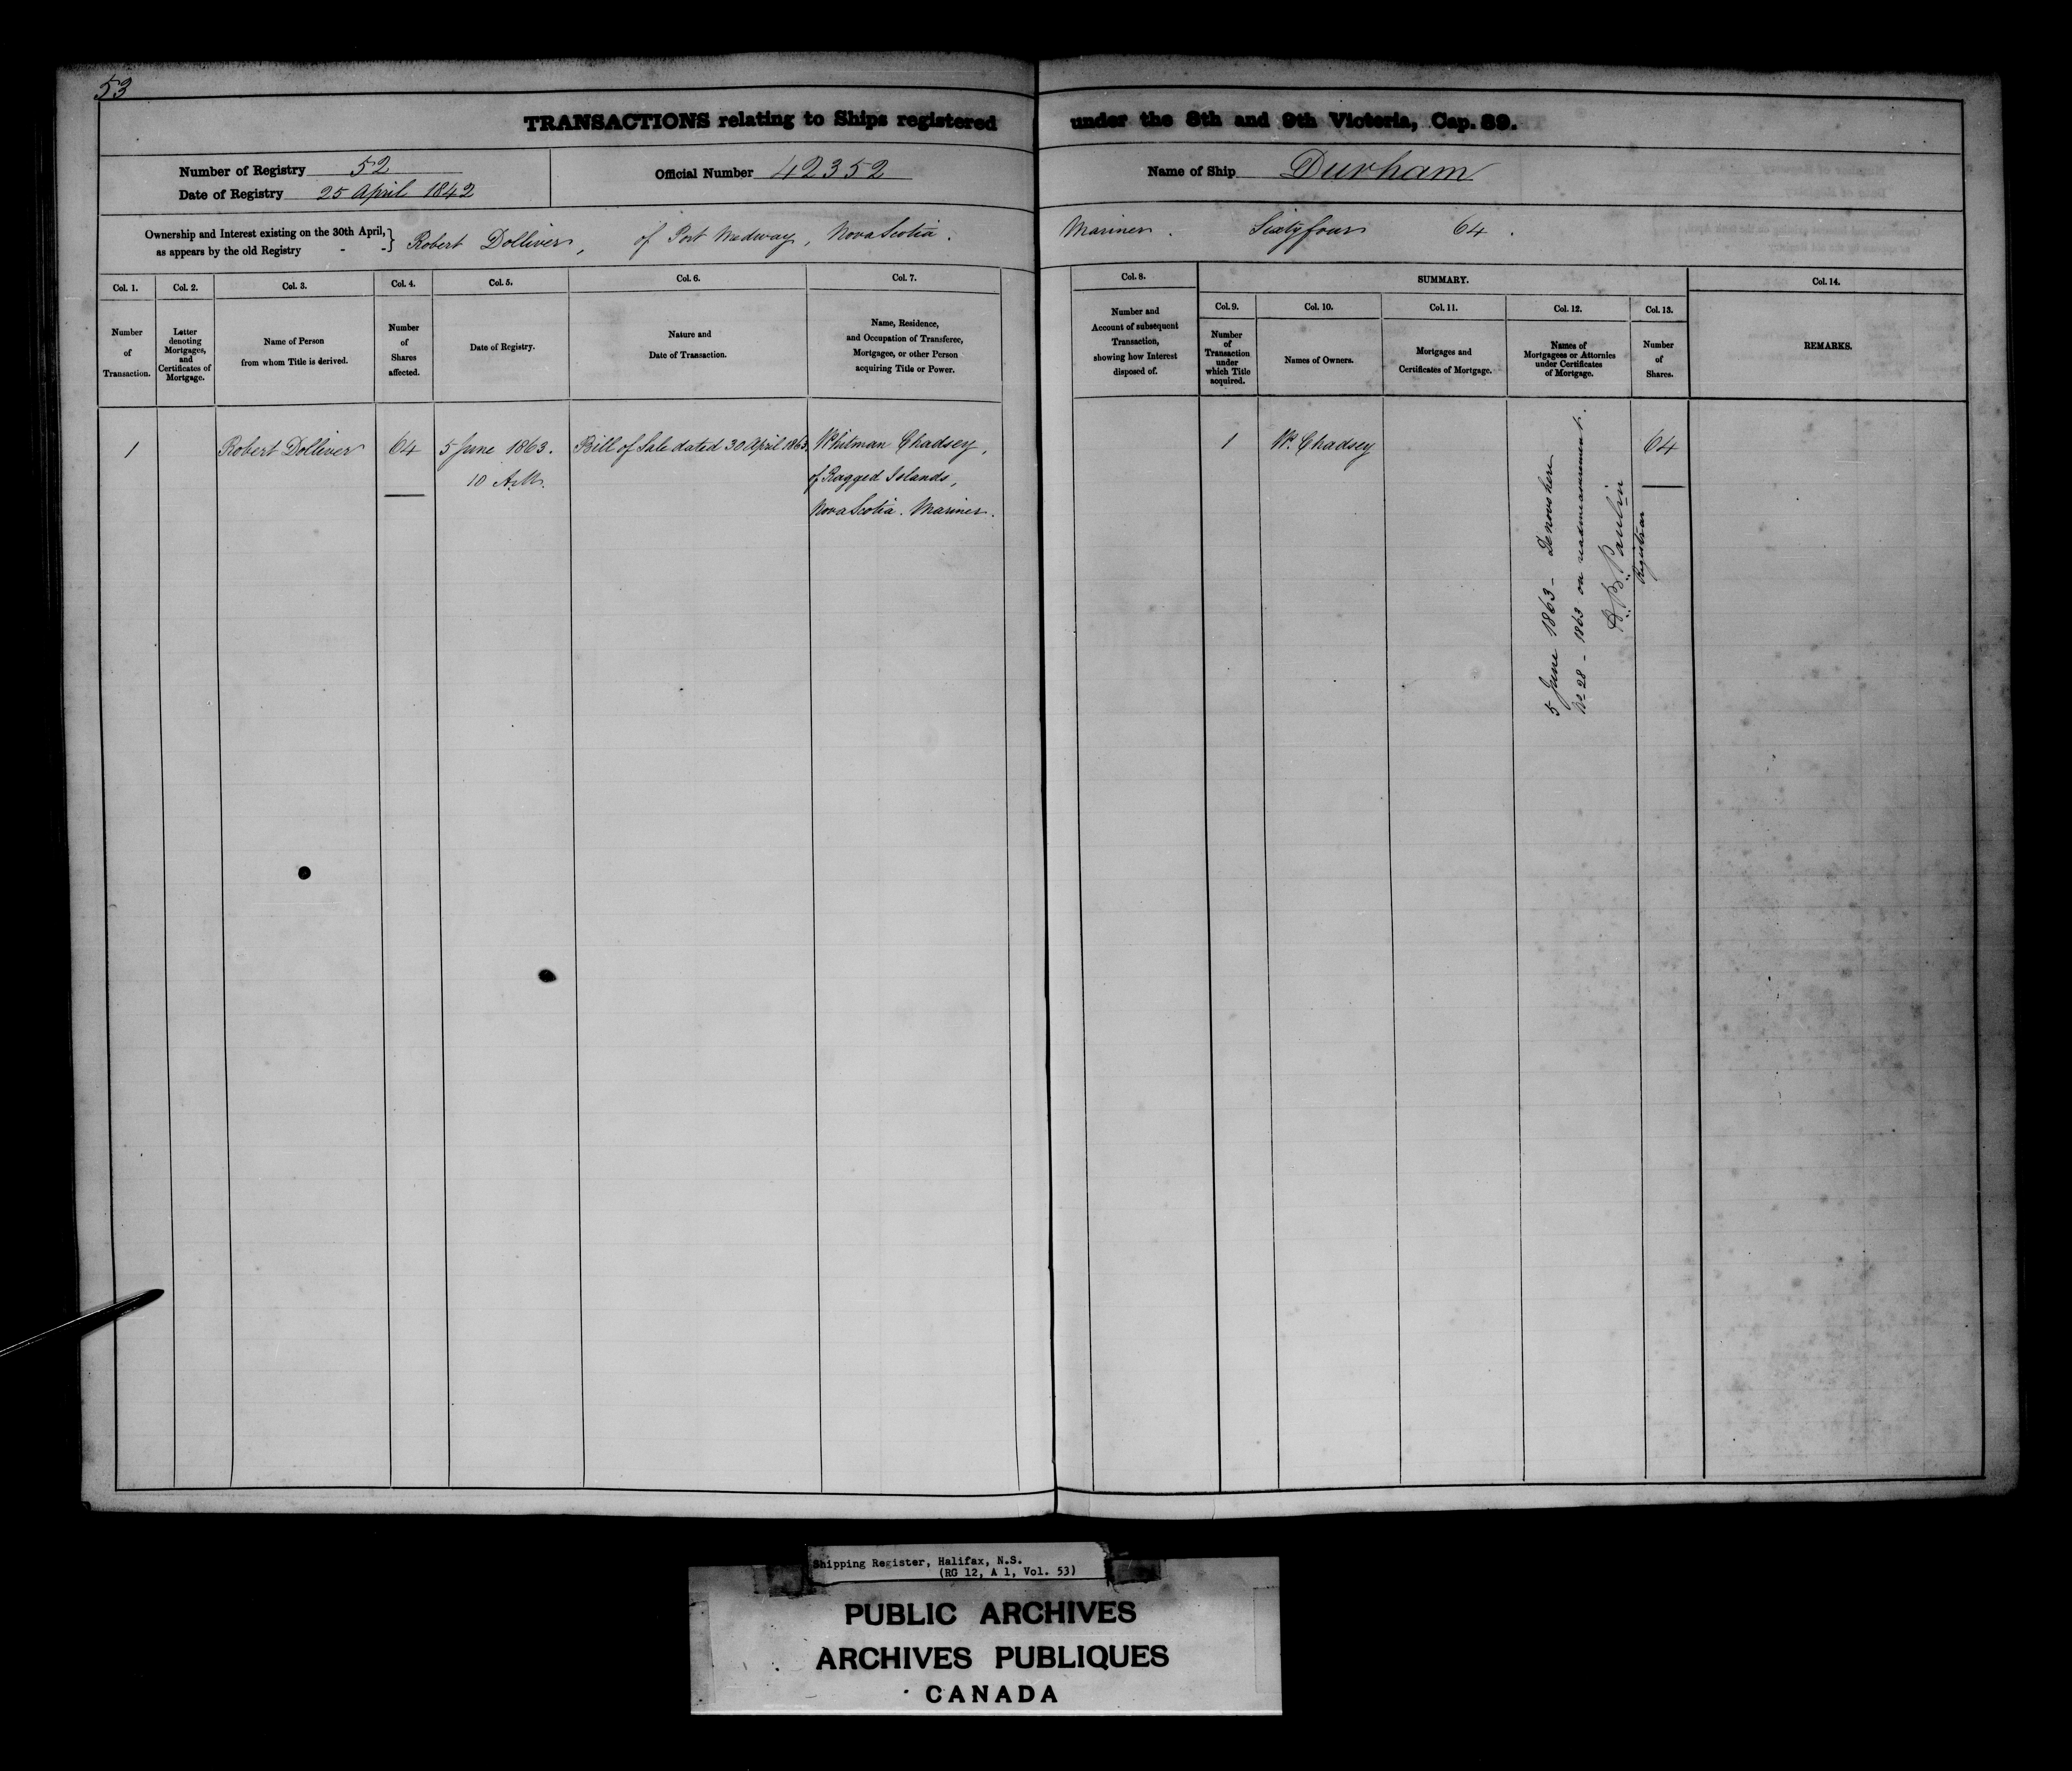 53
TRANSACTIONS relating to Ships registered under the 8th and 9th Victoria, Cap. 89.
Number of Registry 52
Date of Registry 25 April 1842
Official Number 42352
Name of Ship Durham
Ownership and Interest existing on the 30th April,
as appears by the old Registry - - } Robert Dolliver, of Port Medway, Nova Scotia. Mariner. Sixtyfour 64.
Col. 1.
Number
of
Transaction.
Col. 2.
Letter
denoting
Mortgages,
and
Certificates of
Mortgage.
Col. 3.
Name of Person
from whom Title is derived.
Col. 4.
Number
of
Shares
affected.
Col. 5.
Date of Registry.
Col. 6.
Nature and
Date of Transaction.
Col. 7.
Name, Residence,
and Occupation of Transferee,
Mortgagee, or other Person
acquiring Title or Power.
Col. 8.
Number and
Account of subsequent
Transaction,
showing how Interest
disposed of.
SUMMARY.
Col. 9.
Number
of
Transaction
under
which Title
acquired.
Col. 10.
Names of Owners.
Col. 11.
Mortgages and
Certificates of Mortgage.
Col. 12.
Names of
Mortgagees or Attornies
under Certificates
of Mortgage.
Col. 13.
Number
of
Shares.
Col. 14.
REMARKS.
1
Robert Dolliver
64
5 June 1863.
10 A.M.
Bill of Sale dated 30 April 1863.
Whitman Chadsey,
of Ragged Islands,
Nova Scotia. Mariner.
1
W. Chadsey
64
5 June 1863 - Denovo here
No 28 - 1863 on readmeasurement.
Paulin
Registrar
Shipping Register, Halifax, N.S.
(RG 12, A 1, Vol. 53)
PUBLIC ARCHIVES
ARCHIVES PUBLIQUES
CANADA